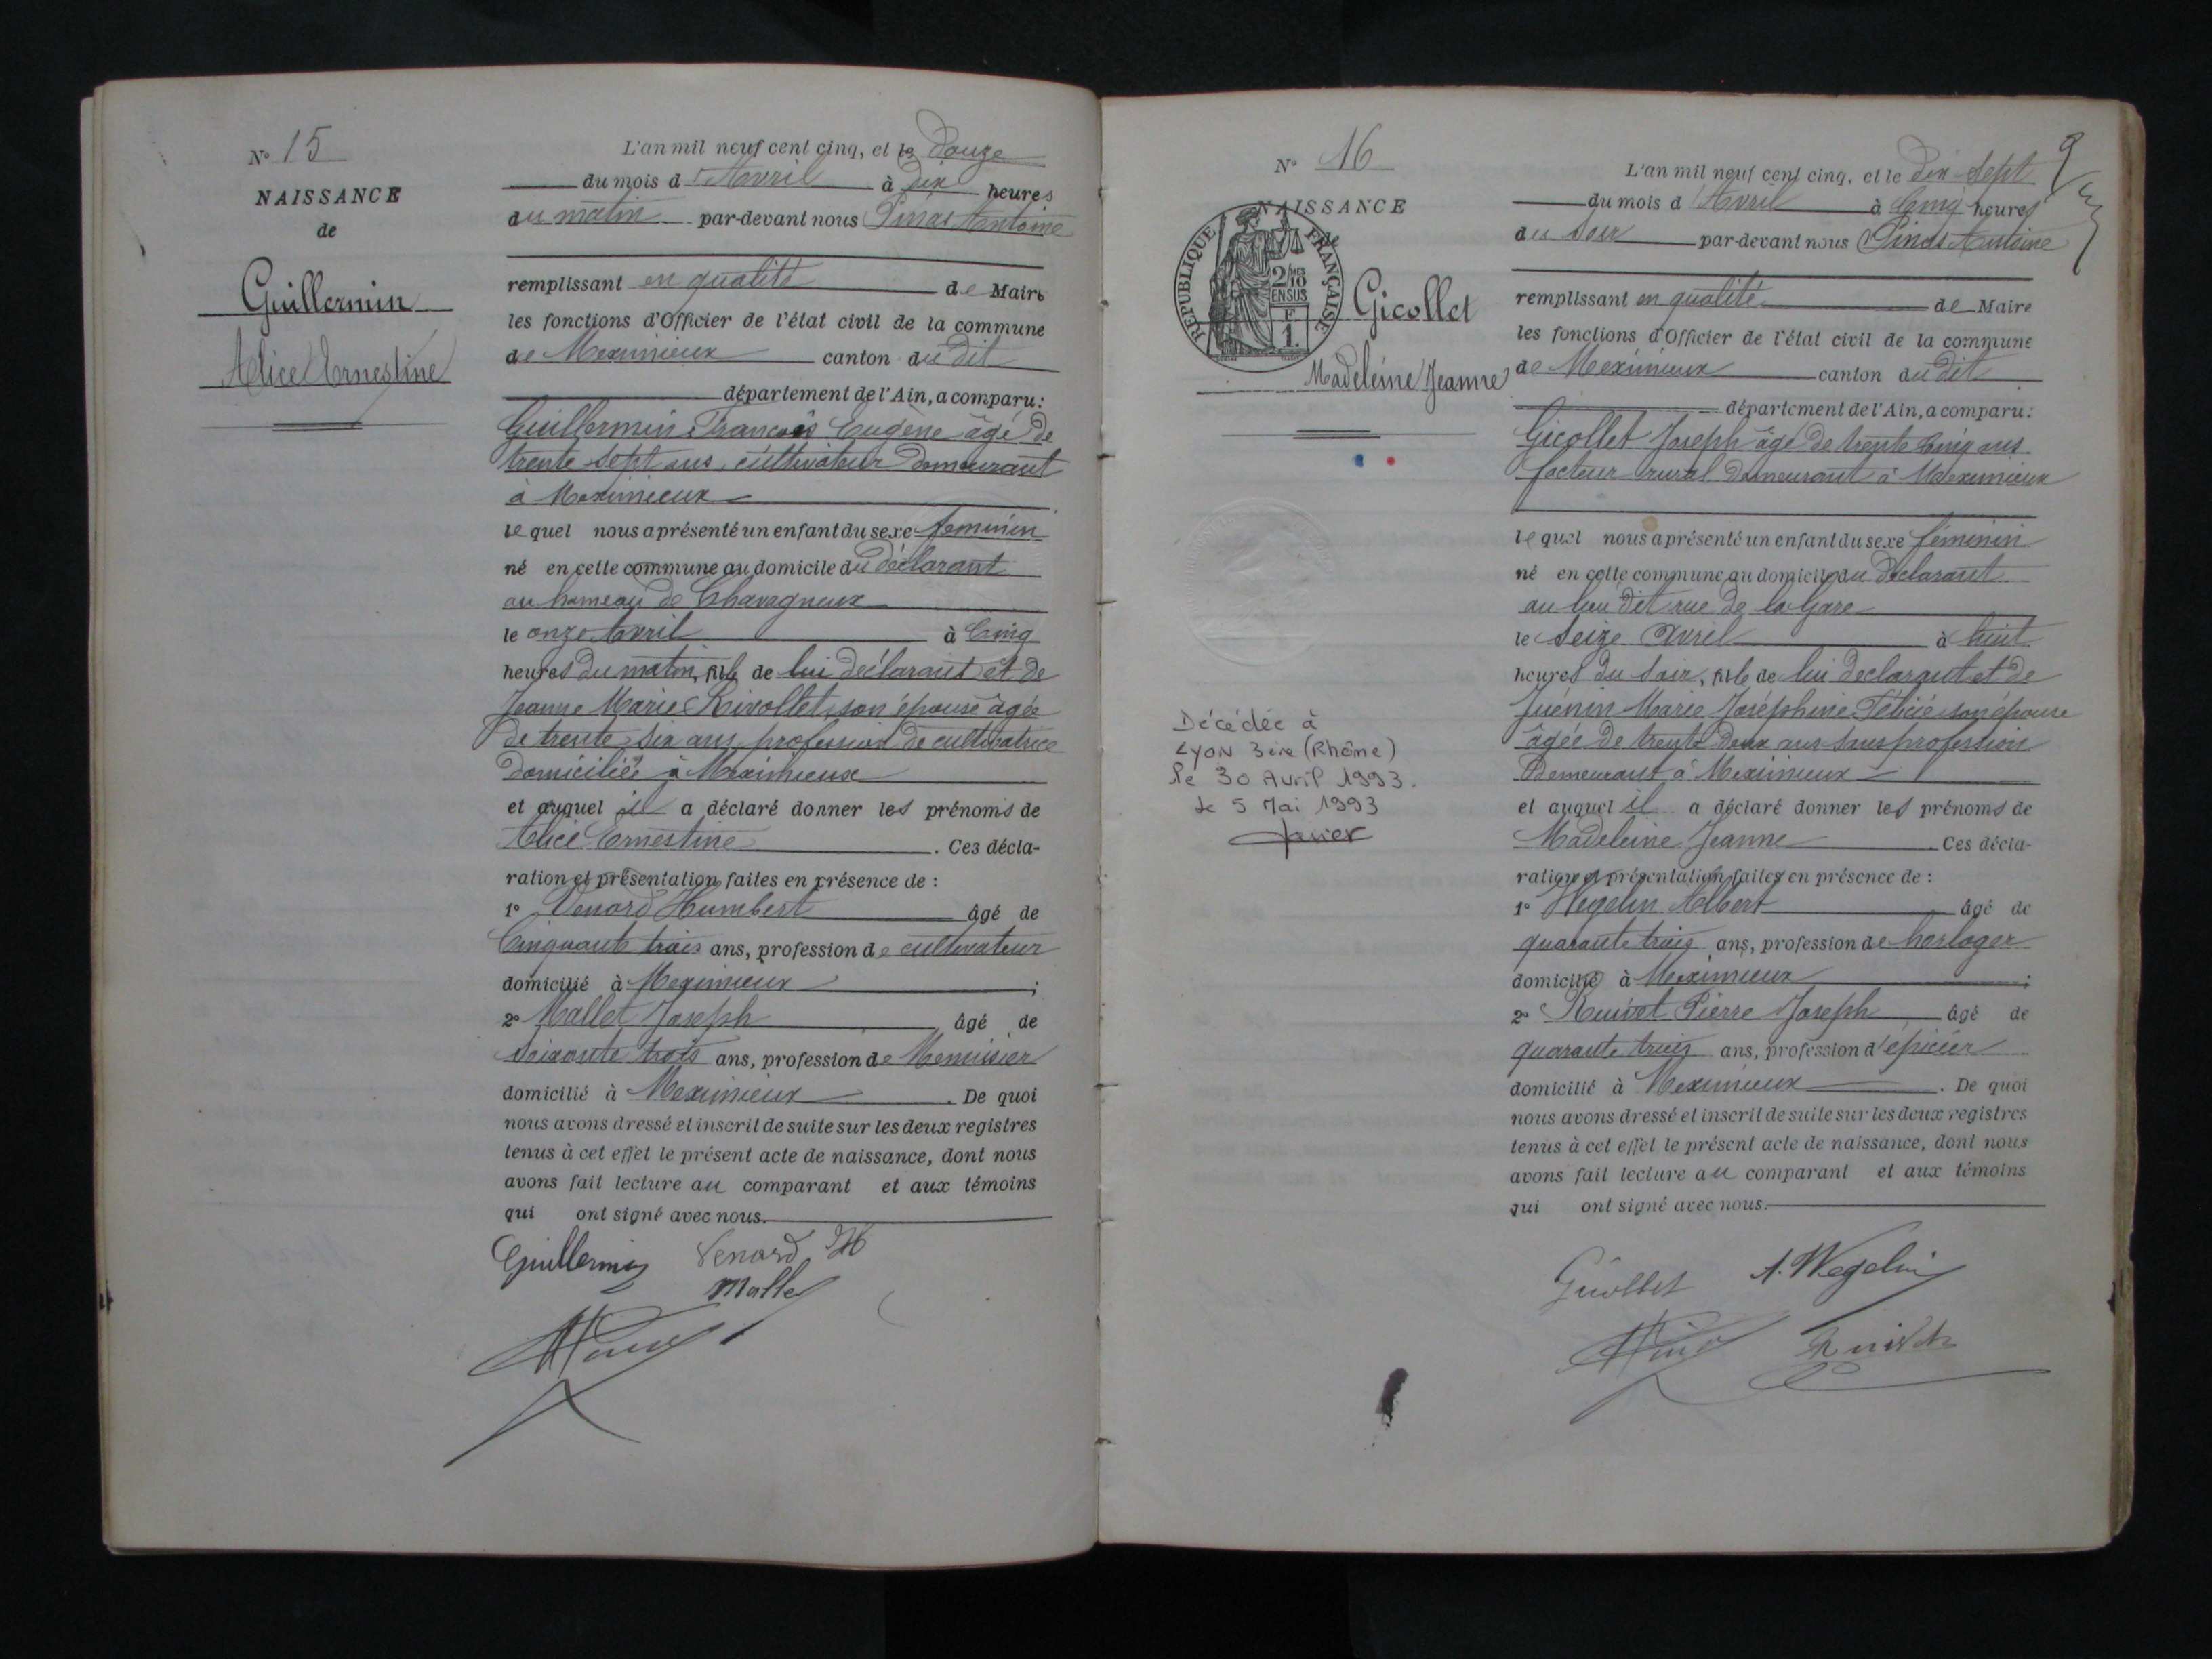 N° 15
NAISSANCE
de
Guillermin
Alice Ernestine
L'an mil neuf cent cinq, et le Douze
du mois d'Avril à dix heures
du matin par-devant nous Pinás Antoine
remplissant en qualité de Maire
les fonctions d'Officier de l'état civil de la commune
de Meximieux canton du dit
département de l'Ain, a comparu:
Guillermin François Eugène âgé de
trente sept ans, cultivateur demeurant
à Meximieux
lequel nous a présenté un enfant du sexe feminin
né en cette commune au domicile du déclarant
au hameau de Chavagneux
le onze Avril à Cinq
heures du matin, fille de lui déclarant et de
Jeanne Marie Rivollet, son épouse âgée
de trente six ans, profession de cultivatrice
domiciliée à Meximieux
et auquel il a déclaré donner les prénoms de
Alice Ernestine. Ces décla-
ration et présentation faites en présence de :
1° Venard Humbert âgé de
Cinquante trois ans, profession de cultivateur
domicilié à Meximieux ;
2° Mallet Joseph âgé de
soixante trois ans, profession de Menuisier
domicilié à Meximieux. De quoi
nous avons dressé et inscrit de suite sur les deux registres
tenus à cet effet le présent acte de naissance, dont nous
avons fait lecture au comparant et aux témoins
qui ont signé avec nous.
Guillermin Venard H
Mallet
N° 16
NAISSANCE
de
RÉPUBLIQUE FRANÇAISE
2/10 MES
EN SUS
F
1.
Gicollet
Madeleine Jeanne
Décédée à
Lyon 3ème (Rhône)
le 30 Avril 1993.
Le 5 Mai 1993
9
L'an mil neuf cent cinq, et le dix-sept
du mois d'Avril à Cinq heures
du soir par-devant nous Pinás Antoine
remplissant en qualité de Maire
les fonctions d'Officier de l'état civil de la commune
de Meximieux canton du dit
département de l'Ain, a comparu:
Gicollet Joseph âgé de trente cinq ans
facteur rural demeurant à Meximieux
lequel nous a présenté un enfant du sexe féminin
né en cette commune au domicile du déclarant
au lieu dit rue de la Gare
le seize Avril à huit
heures du soir, fille de lui declarant et de
Juénin Marie Joséphine Félicie son épouse
âgée de trente deux ans sans profession
Demeurant à Meximieux
et auquel il a déclaré donner les prénoms de
Madeleine Jeanne. Ces décla-
ration et présentation faites en présence de :
1° Wegelin Albert âgé de
quarante trois ans, profession de horloger
domicilié à Meximieux ;
2° Ruivet Pierre Joseph âgé de
quarante trois ans, profession d'épicier
domicilié à Meximieux. De quoi
nous avons dressé et inscrit de suite sur les deux registres
tenus à cet effet le présent acte de naissance, dont nous
avons fait lecture au comparant et aux témoins
qui ont signé avec nous.
Gicollet A. Wegelin